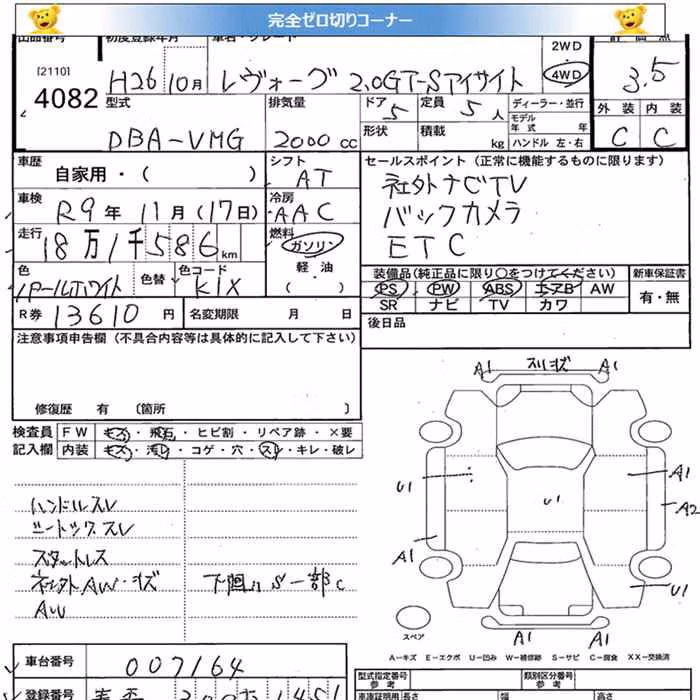 完全ゼロ切りコーナー
出品番号 初度登録年月 車名・グレード 2WD 評価点
[2110] H26 10月 レヴォーグ 2.0GT-Sアイサイト 4WD 3.5
4082 型式 排気量 ドア 5 定員 5人 ディーラー・並行 外装 内装
DBA-VMG 2000cc 形状 積載 kg モデル年式 年 ハンドル 左・右 C C
車歴 自家用・( ) シフト AT セールスポイント(正常に機能するものに限ります)
車検 R9年 11月(17日) 冷房 AAC 社外ナビTV
バックカメラ
走行 18万1千586km 燃料 ガソリン 軽油 ( ・ ) ETC
色 パールホワイト 色替 色コード K1X 装備品(純正品に限り○をつけてください) 新車保証書
PS PW ABS エアB AW 有・無
SR ナビ TV カワ
R券 13610円 名変期限 月 日 後日品
注意事項申告欄(不具合内容等は具体的に記入して下さい)
修復歴 有 〔箇所 〕
検査員 FW キズ・飛石・ヒビ割・リペア跡・×要
記入欄 内装 キズ・汚レ・コゲ・穴・スレ・キレ・破レ
ハンドルスレ
シートックスレ
スタットレス
社外AW・キズ 下廻りS一部C
AW
A1 スリキズ A1
U1 U1 A1
A2
A1
U1
A1 A1
スペア
A-キズ E-エクボ U-凹み W-補修跡 S-サビ C-腐食 XX-交換済
車台番号 007164 型式指定番号 参考 類別区分番号 参考
登録番号 車庫証明用 長さ 幅 高さ